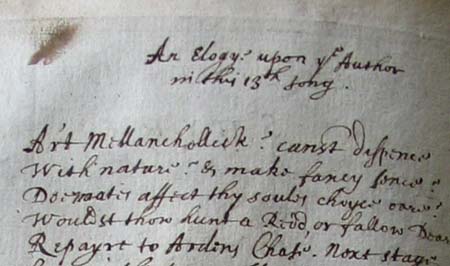 An Elogye upon yͤ Author
in this 13th song.
Art Mellanchollick? canst dispence
With nature? & make fancy sence?
Doe waters affect thy soules choyce eare?
Wouldst thow hunt a Redd, or fallow Deare
Repayre to Ardens Chase. Next stage